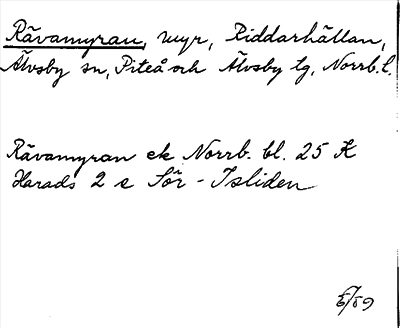 Rävamyran, myr, Riddarhällan,
Älvsby sn, Piteå och Älvsby tg, Norrb. l.
Rävamyran ek Norrb. bl. 25 K
Harads 2 e Sör-Isliden
5/59